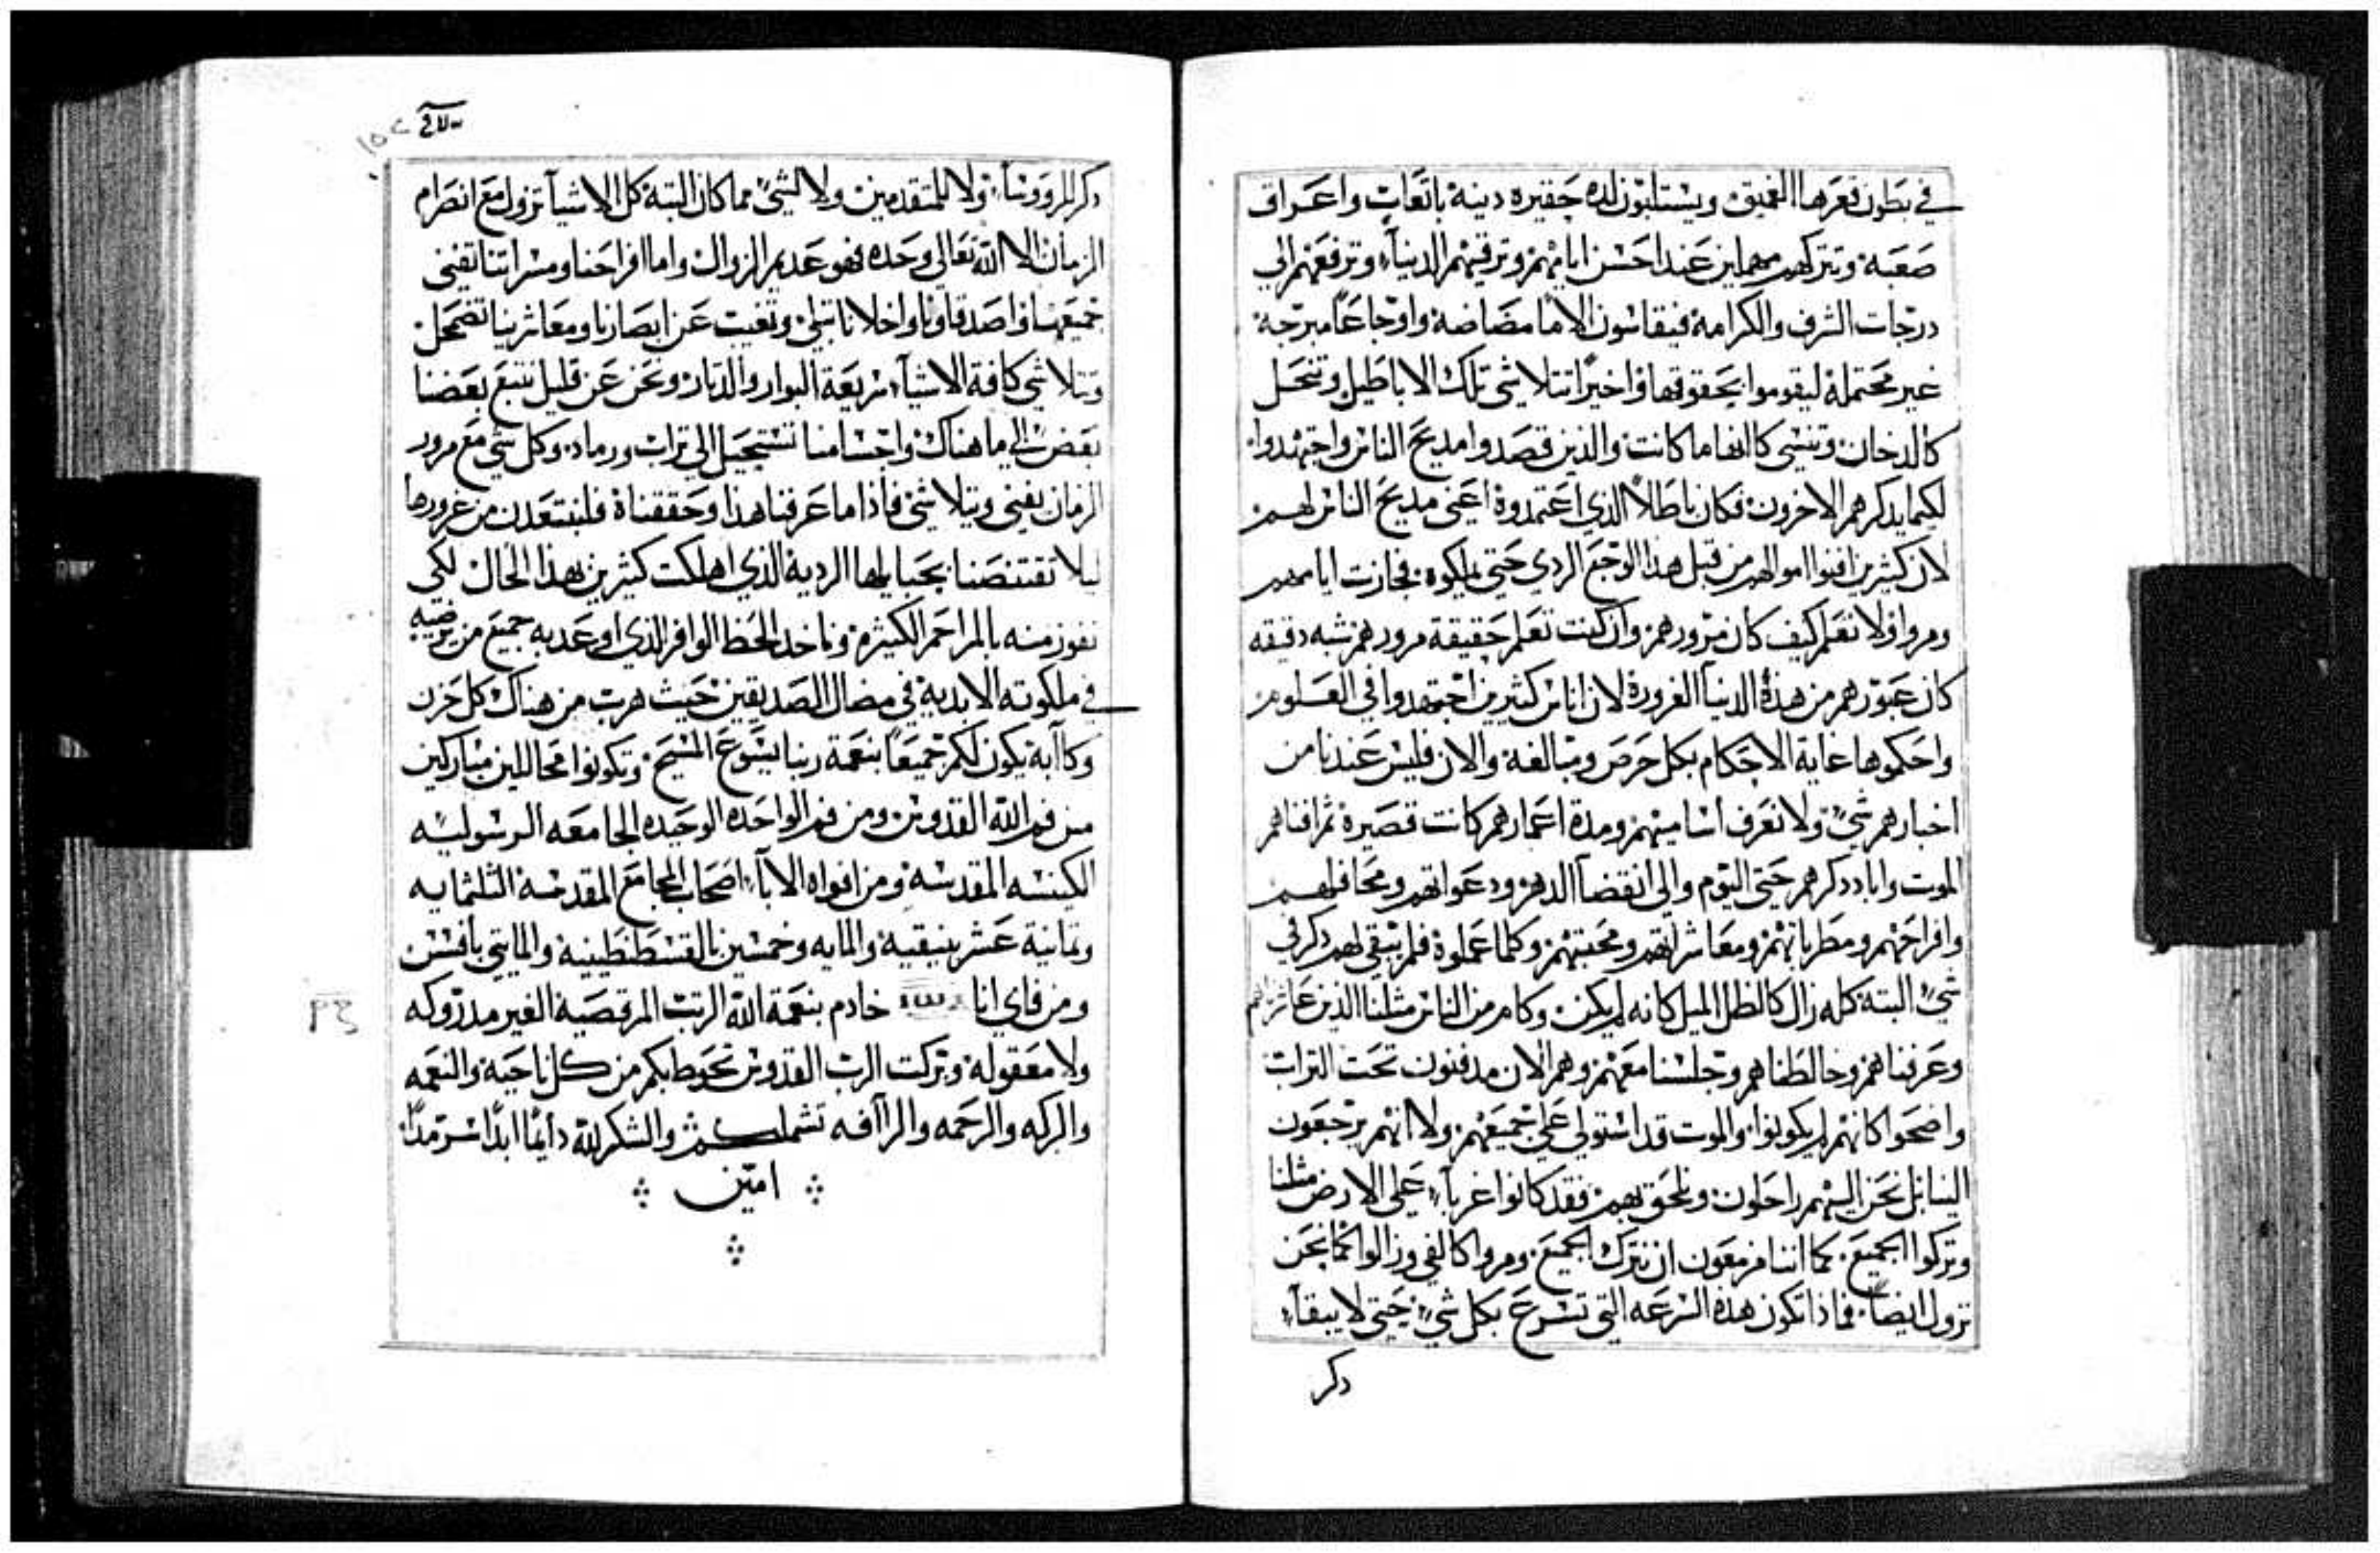 في بطون قعرها العميق ويستلبون لذه حقيره دينة باتعاب واعراق
صعبة وتتركهم مهملين عند احسن ايامهم وترقيهم الدنيآ وترفعهم الي
درجات الشرف والكرامة فيقاسون الامًا مضاضة واوجاعًا مبرحة
غير محتملة ليقوموا بحقوقها واخيرًا تتلاشي تلك الاباطيل وتنحل
كالدخان وتنسي كانها ما كانت والذين قصدوا مديح الناس واجتهدوا
لكيما يذكرهم الاخرون فكان باطلاً الذي اعتمدوة اعني مديح الناس لهم
لان كثيرين افنوا اموالهم من قبل هذا الوجع الردي حتي يملكوه فجازت ايامهم
ومروا ولا نعلم كيف كان مرورهم وان كنت تعلم حقيقة مرورهم شبه دقيقه
كان عبورهم من هذة الدنيآ الغرورة لان اناس كثيرين اجتهدوا في العلوم
واحكموها غاية الاحكام بكل حرص ومبالغة والان فليس عندنا من
اخبارهم شيء ولا نعرف اساميهم ومدة اعمارهم كانت قصيرة ثم افناهم
الموت واباد دكرهم حتي اليوم والي انقضآ الدهر ودعواتهم ومحافلهم
وافراحهم ومطرباتهم ومعاشراتهم ومحبتهم وكلما عملوة فلم يبقي لهم دكر في
شيء البتة كله زال كالظل الميل كانه لم يكن وكام من الناس مثلنا الذين عاشرناهم
وعرفناهم وخالطناهم وجلسنا معهم وهم الان مدفنون تحت التراب
واضحوا كانهم لم يكونوا والموت قد استولي علي جميعهم ولا انهم يرجعون
الينا بل نحن اليهم راحلون ونلحق بهم فقد كانوا غربآء علي الارض مثلنا
وتركوا الجميع كما اننا مزمعون ان نترك الجميع ومروا كالفي وزالوا كما نحن
نزول ايضاً فماذا تكون هذة السرعه التي تسرع بكل شيء حتي لا يبقآ
دكر
دكر للروونسآء ولا للمتقدمين ولا لشيء مما كان البتة كل الاشيآ تزول مع انصرام
الزمان الا الله تعالي وحده فهو عديم الزوال واما افراحنا ومسراتنا تفني
جميعها واصدقاونا واخلانا تبلي وتغيب عن ابصارنا ومعاشرينا تضمحل
وتتلاشي كافة الاشيآ سريعة البوار والدثار ونحن عن قليل نتبع بعضنا
بعض الي ما هناك واجسامنا تستحيل الي تراب ورماد وكل شي مع مرور
الزمان يفني ويتلاشي فاذا ما عرفنا هذا وحققناة فلنبتعدن من غرورها
ليلا تقتنصنا بحبايلها الردية الذي اهلكت كثيرين بهذا الحال لكي
نفوز منه بالمراحم الكثيرة وناخد الحظ الوافر الذي اوعد به جميع من يرضيه
في ملكوته الابدية في مضال الصديقين حيث هرب من هناك كل حزن
وكاآبة يكون لكم جميعًا بنعمة ربنا يسوع المسيح وتكونوا محاللين مباركين
من فم الله القدوس ومن فم الواحده الوحيده الجامعه الرسوليه
الكنسه المقدسه ومن افواه الابآء اصحاب المجامع المقدسة الثلثمايه
وتمانية عشر بنيقية والمايه وخمسين بالقسطنطينيه والمايتي بافسس
ومن فاي انا خادم بنعمة الله الرتب المرقصية الغير مدروكه
ولا معقولة وبركت الرب القدوس تحوط بكم من كل ناحية والنعمه
والبركه والرحمه والراآفه تشملكم والشكر لله دايمًا ابدًا سرمدًا
امين